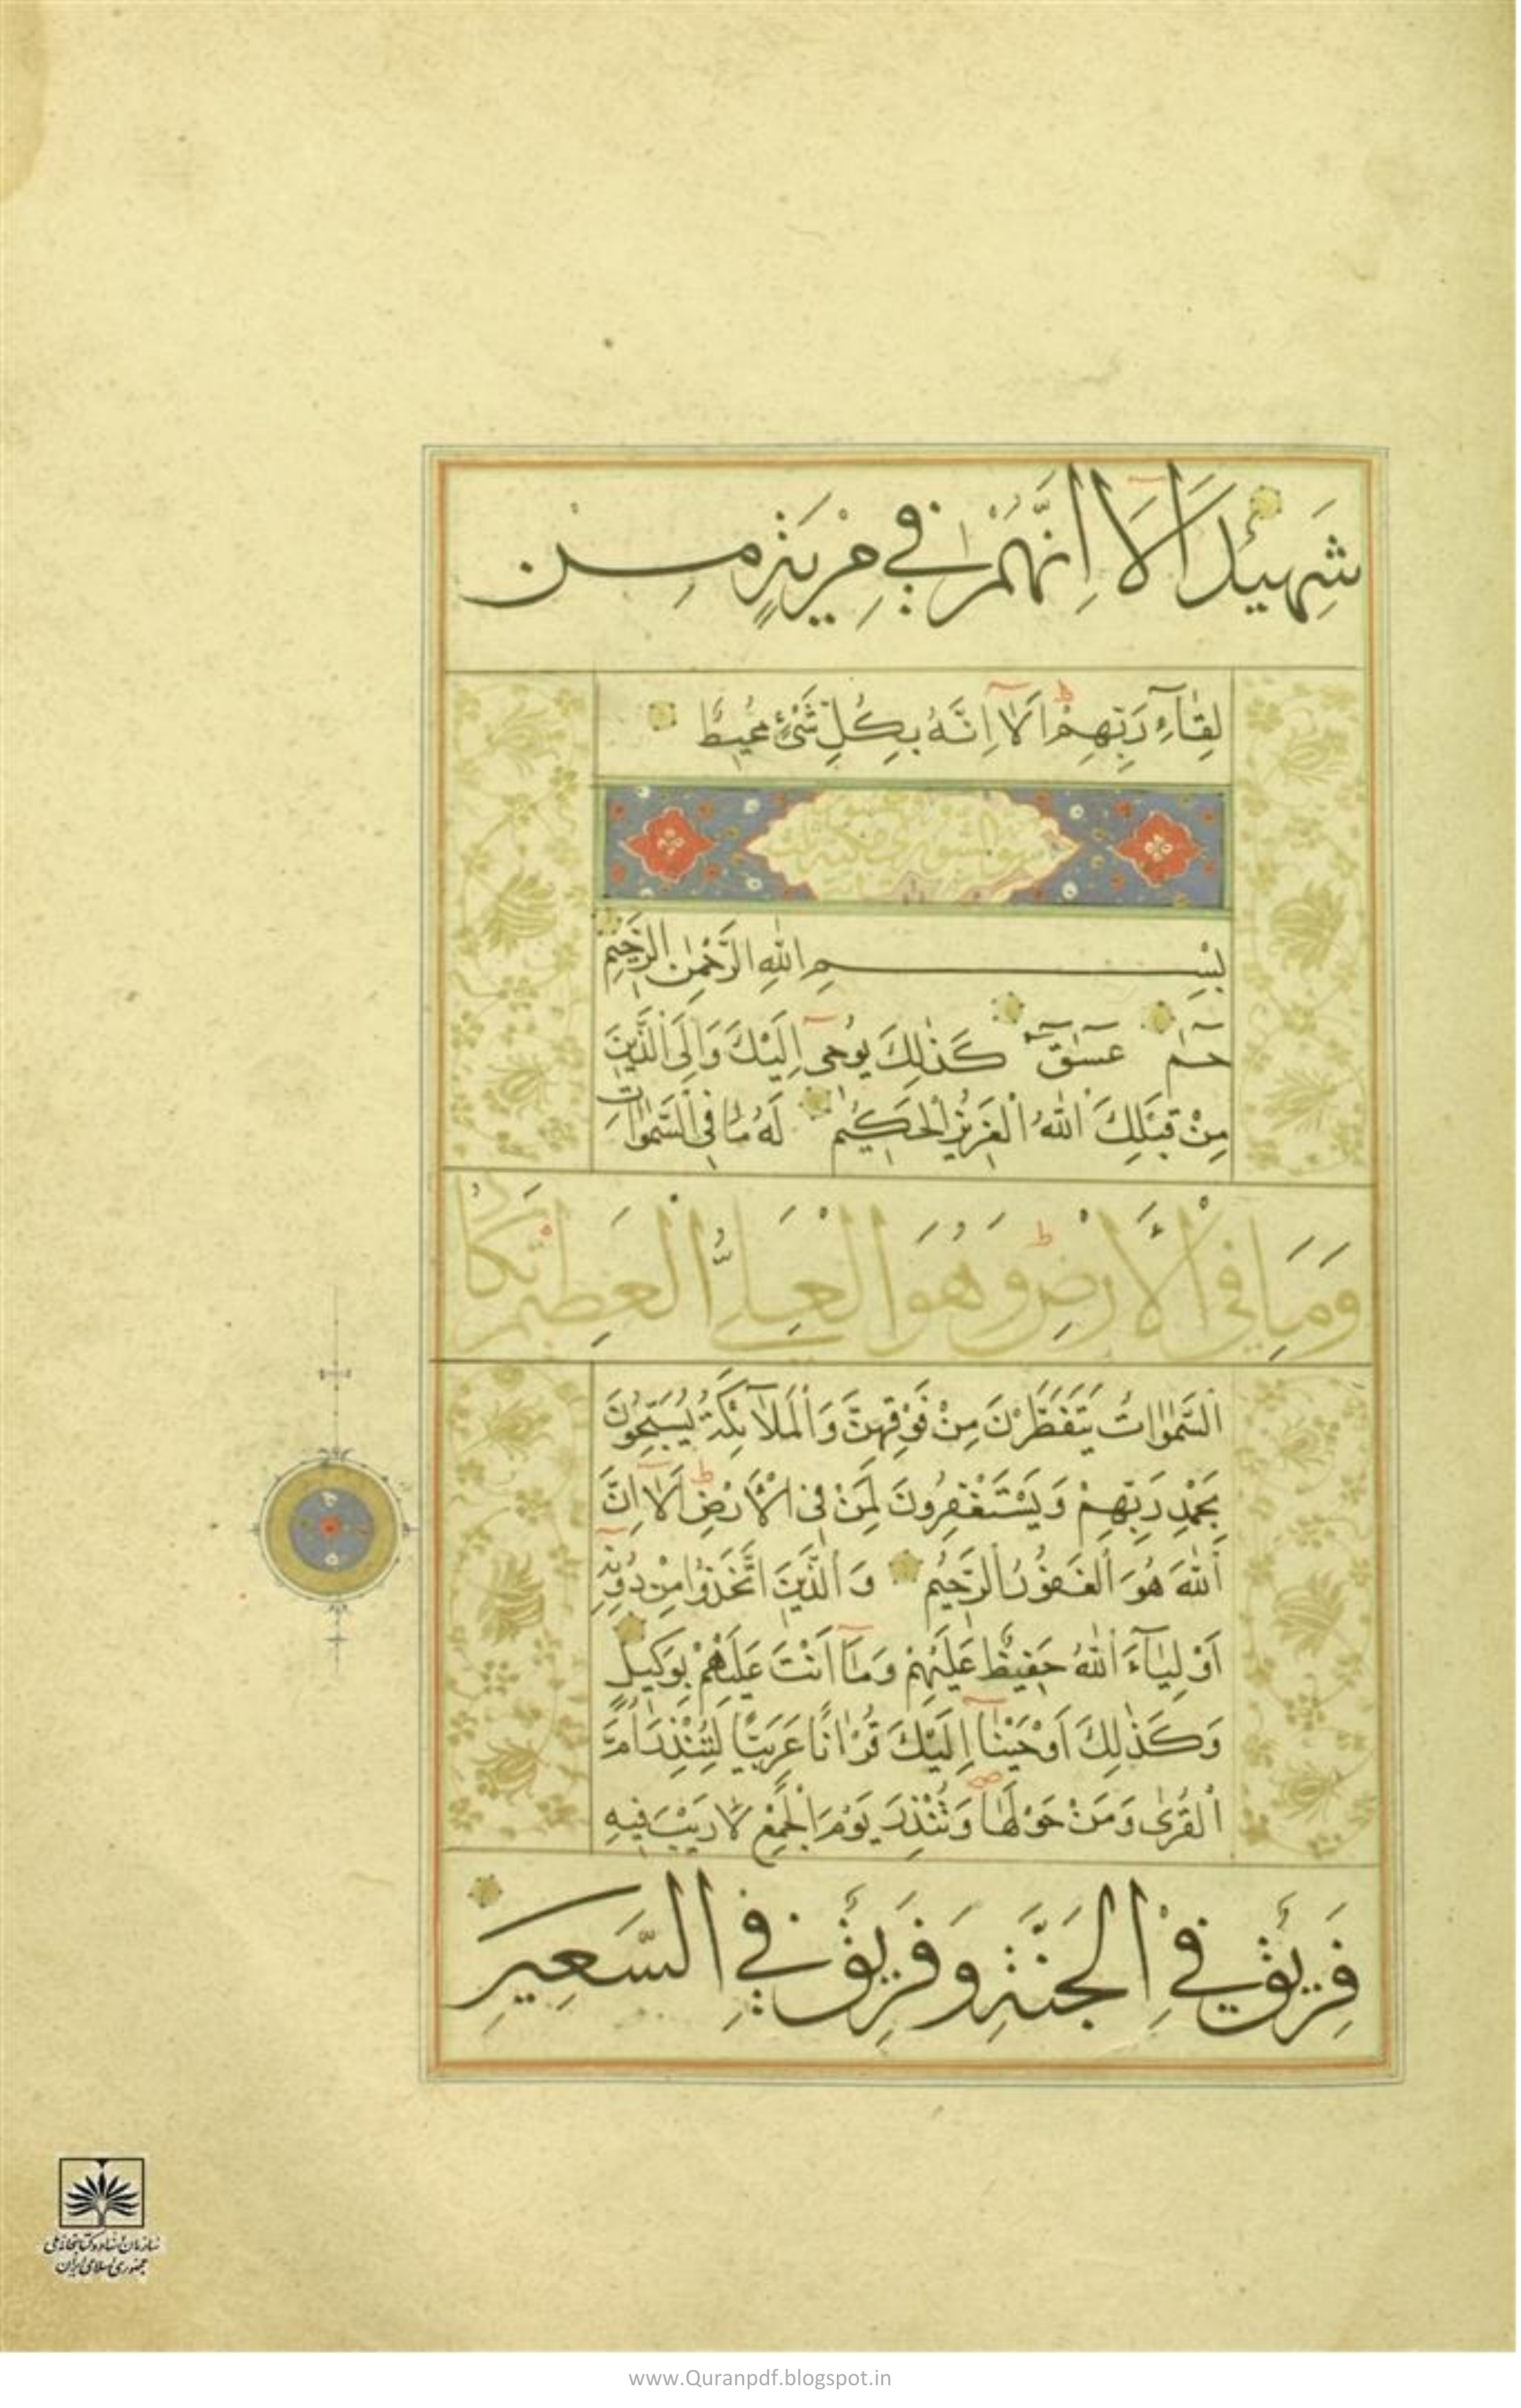 شَهِيدٌ اَلَا اِنَّهُمْ فِي مِرْيَةٍ مِنْ
لِقَاءِ رَبِّهِمْ اَلَا اِنَّهُ بِكُلِّ شَيْءٍ مُحِيطٌ
بِسْمِ اللهِ الرَّحْمٰنِ الرَّحِيمِ
حم عسق كَذٰلِكَ يُوحِى اِلَيْكَ وَاِلَى الَّذِينَ
مِنْ قَبْلِكَ اللهُ الْعَزِيزُ الْحَكِيمُ لَهُ مَا فِي السَّمٰوَاتِ
وَمَا فِي الْاَرْضِ وَهُوَ الْعَلِيُّ الْعَظِيمُ تَكَادُ
السَّمٰوَاتُ يَتَفَطَّرْنَ مِنْ فَوْقِهِنَّ وَالْمَلٰٓائِكَةُ يُسَبِّحُونَ
بِحَمْدِ رَبِّهِمْ وَيَسْتَغْفِرُونَ لِمَنْ فِي الْاَرْضِ اَلَا اِنَّ
اللهَ هُوَ الْغَفُورُ الرَّحِيمُ وَالَّذِينَ اتَّخَذُوا مِنْ دُونِهِ
اَوْلِيَاءَ اللهُ حَفِيظٌ عَلَيْهِمْ وَمَا اَنْتَ عَلَيْهِمْ بِوَكِيلٍ
وَكَذٰلِكَ اَوْحَيْنَا اِلَيْكَ قُرْاٰنًا عَرَبِيًّا لِتُنْذِرَ اُمَّ
الْقُرٰى وَمَنْ حَوْلَهَا وَتُنْذِرَ يَوْمَ الْجَمْعِ لَا رَيْبَ فِيهِ
فَرِيقٌ فِي الْجَنَّةِ وَفَرِيقٌ فِي السَّعِيرِ
سازمان اسناد و کتابخانه ملی
جمهوری اسلامی ایران
www.Quranpdf.blogspot.in